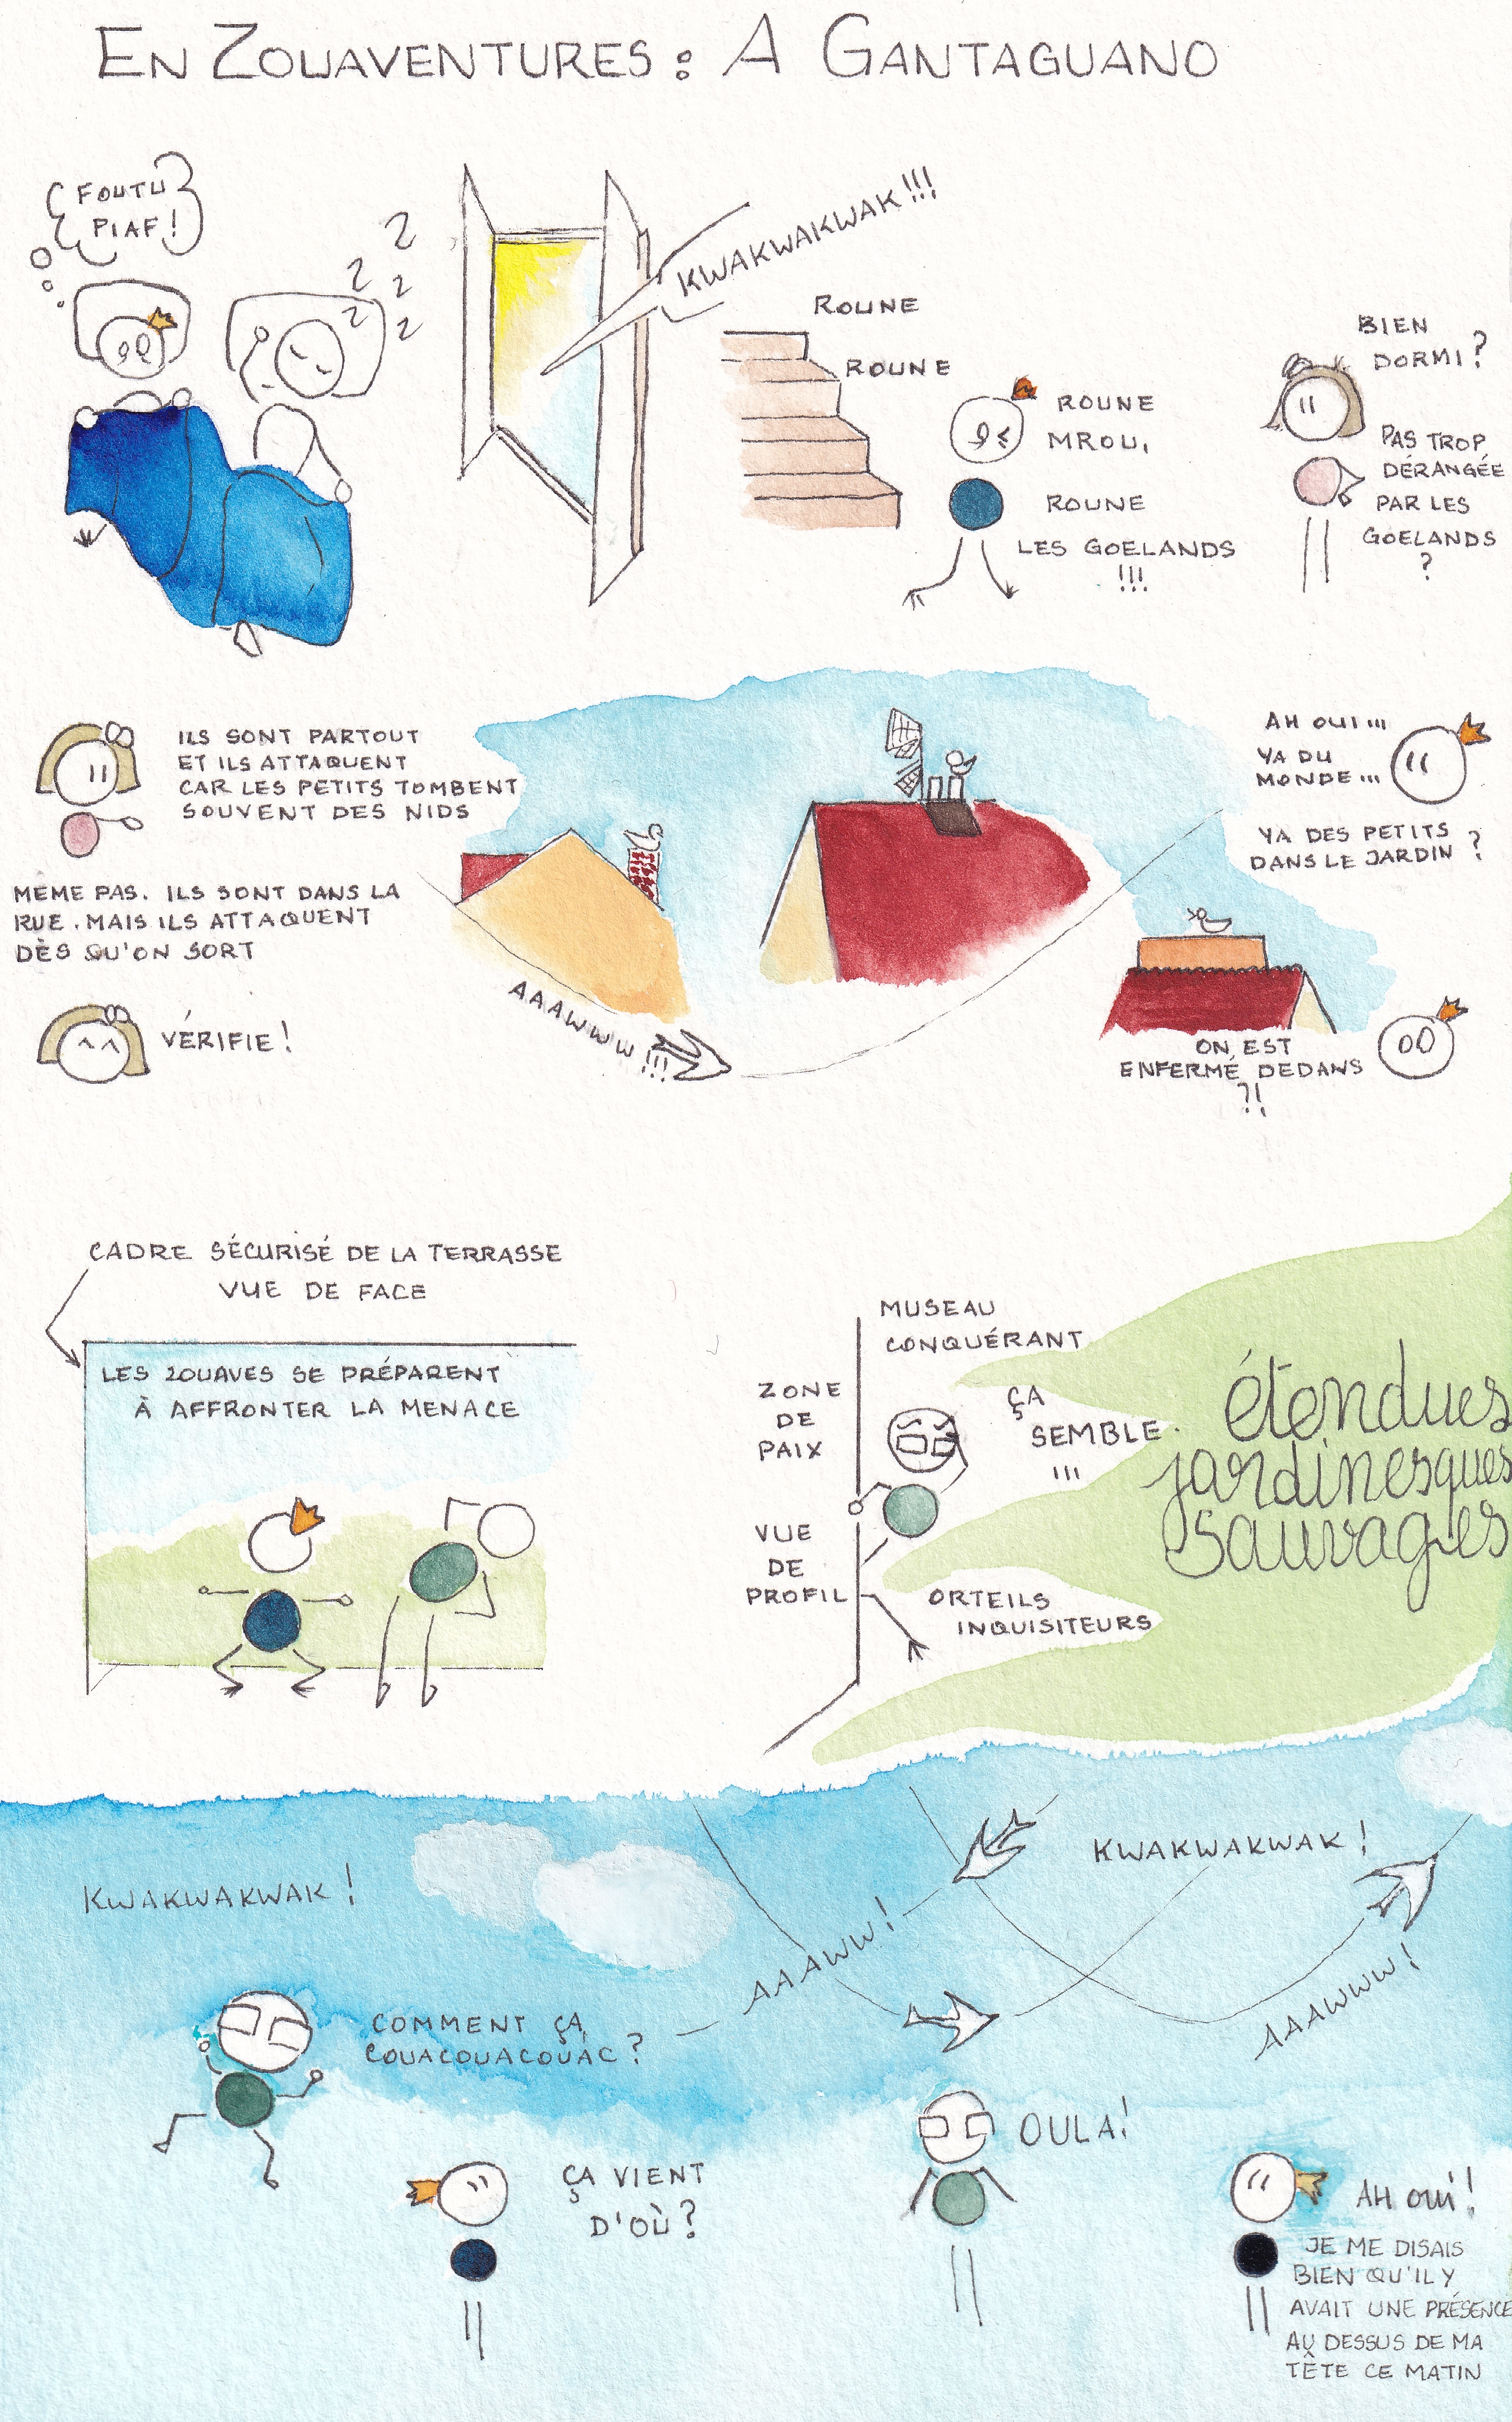 EN ZOUAVENTURES : A GANTAGUANO
FOUTU
PIAF !
Z
Z
Z
Z
Z
KWAKWAKWAK !!!
ROUNE
ROUNE
ROUNE
MROU,
ROUNE
LES GOELANDS
!!!
BIEN
DORMI ?
PAS TROP
DÉRANGÉE
PAR LES
GOELANDS
?
ILS SONT PARTOUT
ET ILS ATTAQUENT
CAR LES PETITS TOMBENT
SOUVENT DES NIDS
AH OUI ...
YA DU
MONDE ...
YA DES PETITS
DANS LE JARDIN ?
MÊME PAS. ILS SONT DANS LA
RUE. MAIS ILS ATTAQUENT
DÈS QU'ON SORT
AAAWWW !!!
ON EST
ENFERMÉ DEDANS
?!
VÉRIFIE !
CADRE SÉCURISÉ DE LA TERRASSE
VUE DE FACE
LES ZOUAVES SE PRÉPARENT
À AFFRONTER LA MENACE
MUSEAU
CONQUÉRANT
ZONE
DE
PAIX
ÇA
SEMBLE.
...
VUE
DE
PROFIL
ORTEILS
INQUISITEURS
étendues
jardinesques
sauvages
KWAKWAKWAK !
KWAKWAKWAK !
AAAWW !
AAAWWW !
COMMENT ÇA,
COUACOUACOUAC ?
ÇA VIENT
D'OÙ ?
OULA !
AH oui !
JE ME DISAIS
BIEN QU'IL Y
AVAIT UNE PRÉSENCE
AU DESSUS DE MA
TÊTE CE MATIN